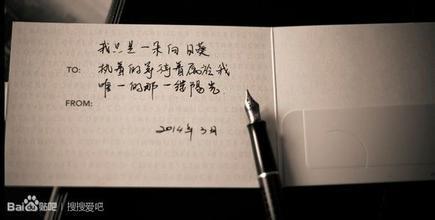 我只是一朵向日葵
TO: 执着的等待着属於我
唯一的那一缕陽光
FROM:
2014年3月
Bai贴吧 | 搜搜爱吧